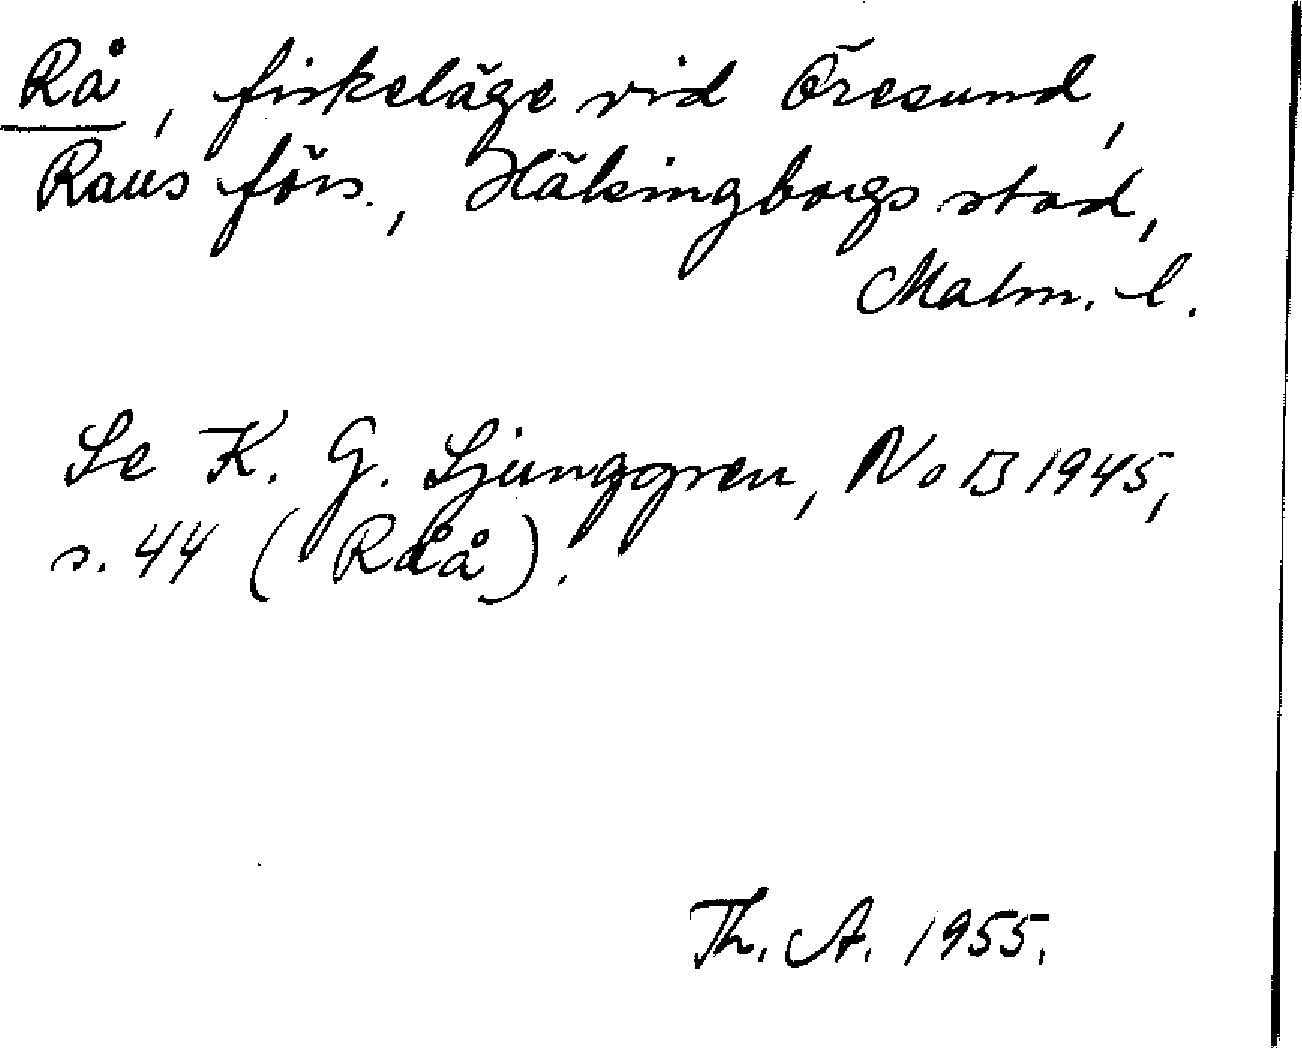 Rå, fiskeläge vid Öresund,
Raus förs., Hälsingborgs stad,
Malm. l.
Se K. G. Ljunggren, NoB 1945,
s. 44 (Råå).
Th. A. 1955.